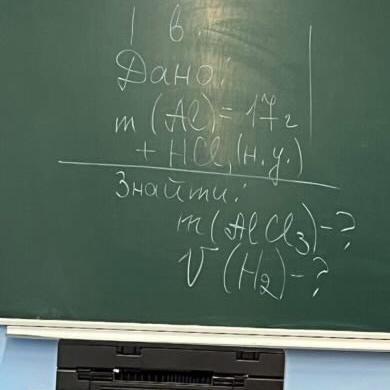 1 в.
Дано:
m (Al) = 17 г
+ HCl, (н.у.)
Знайти:
m (AlCl₃) - ?
V (H₂) - ?